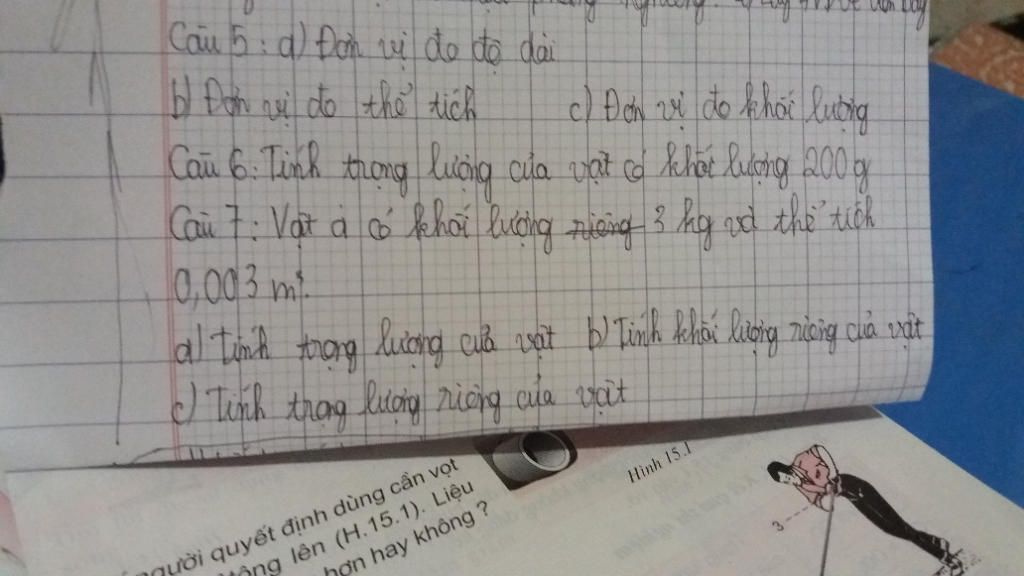 Câu 5: a) Đơn vị đo độ dài
b) Đơn vị đo thể tích c) Đơn vị đo khối lượng
Câu 6: Tính trọng lượng của vật có khối lượng 200g
Câu 7: Vật à có khối lượng riêng 3 kg và thể tích
0,003 m³.
a) Tính trọng lượng của vật b) Tính khối lượng riêng của vật
c) Tính trọng lượng riêng của vật
Hình 15.1
người quyết định dùng cần vọt
lên (H.15.1). Liệu
hơn hay không ?
3